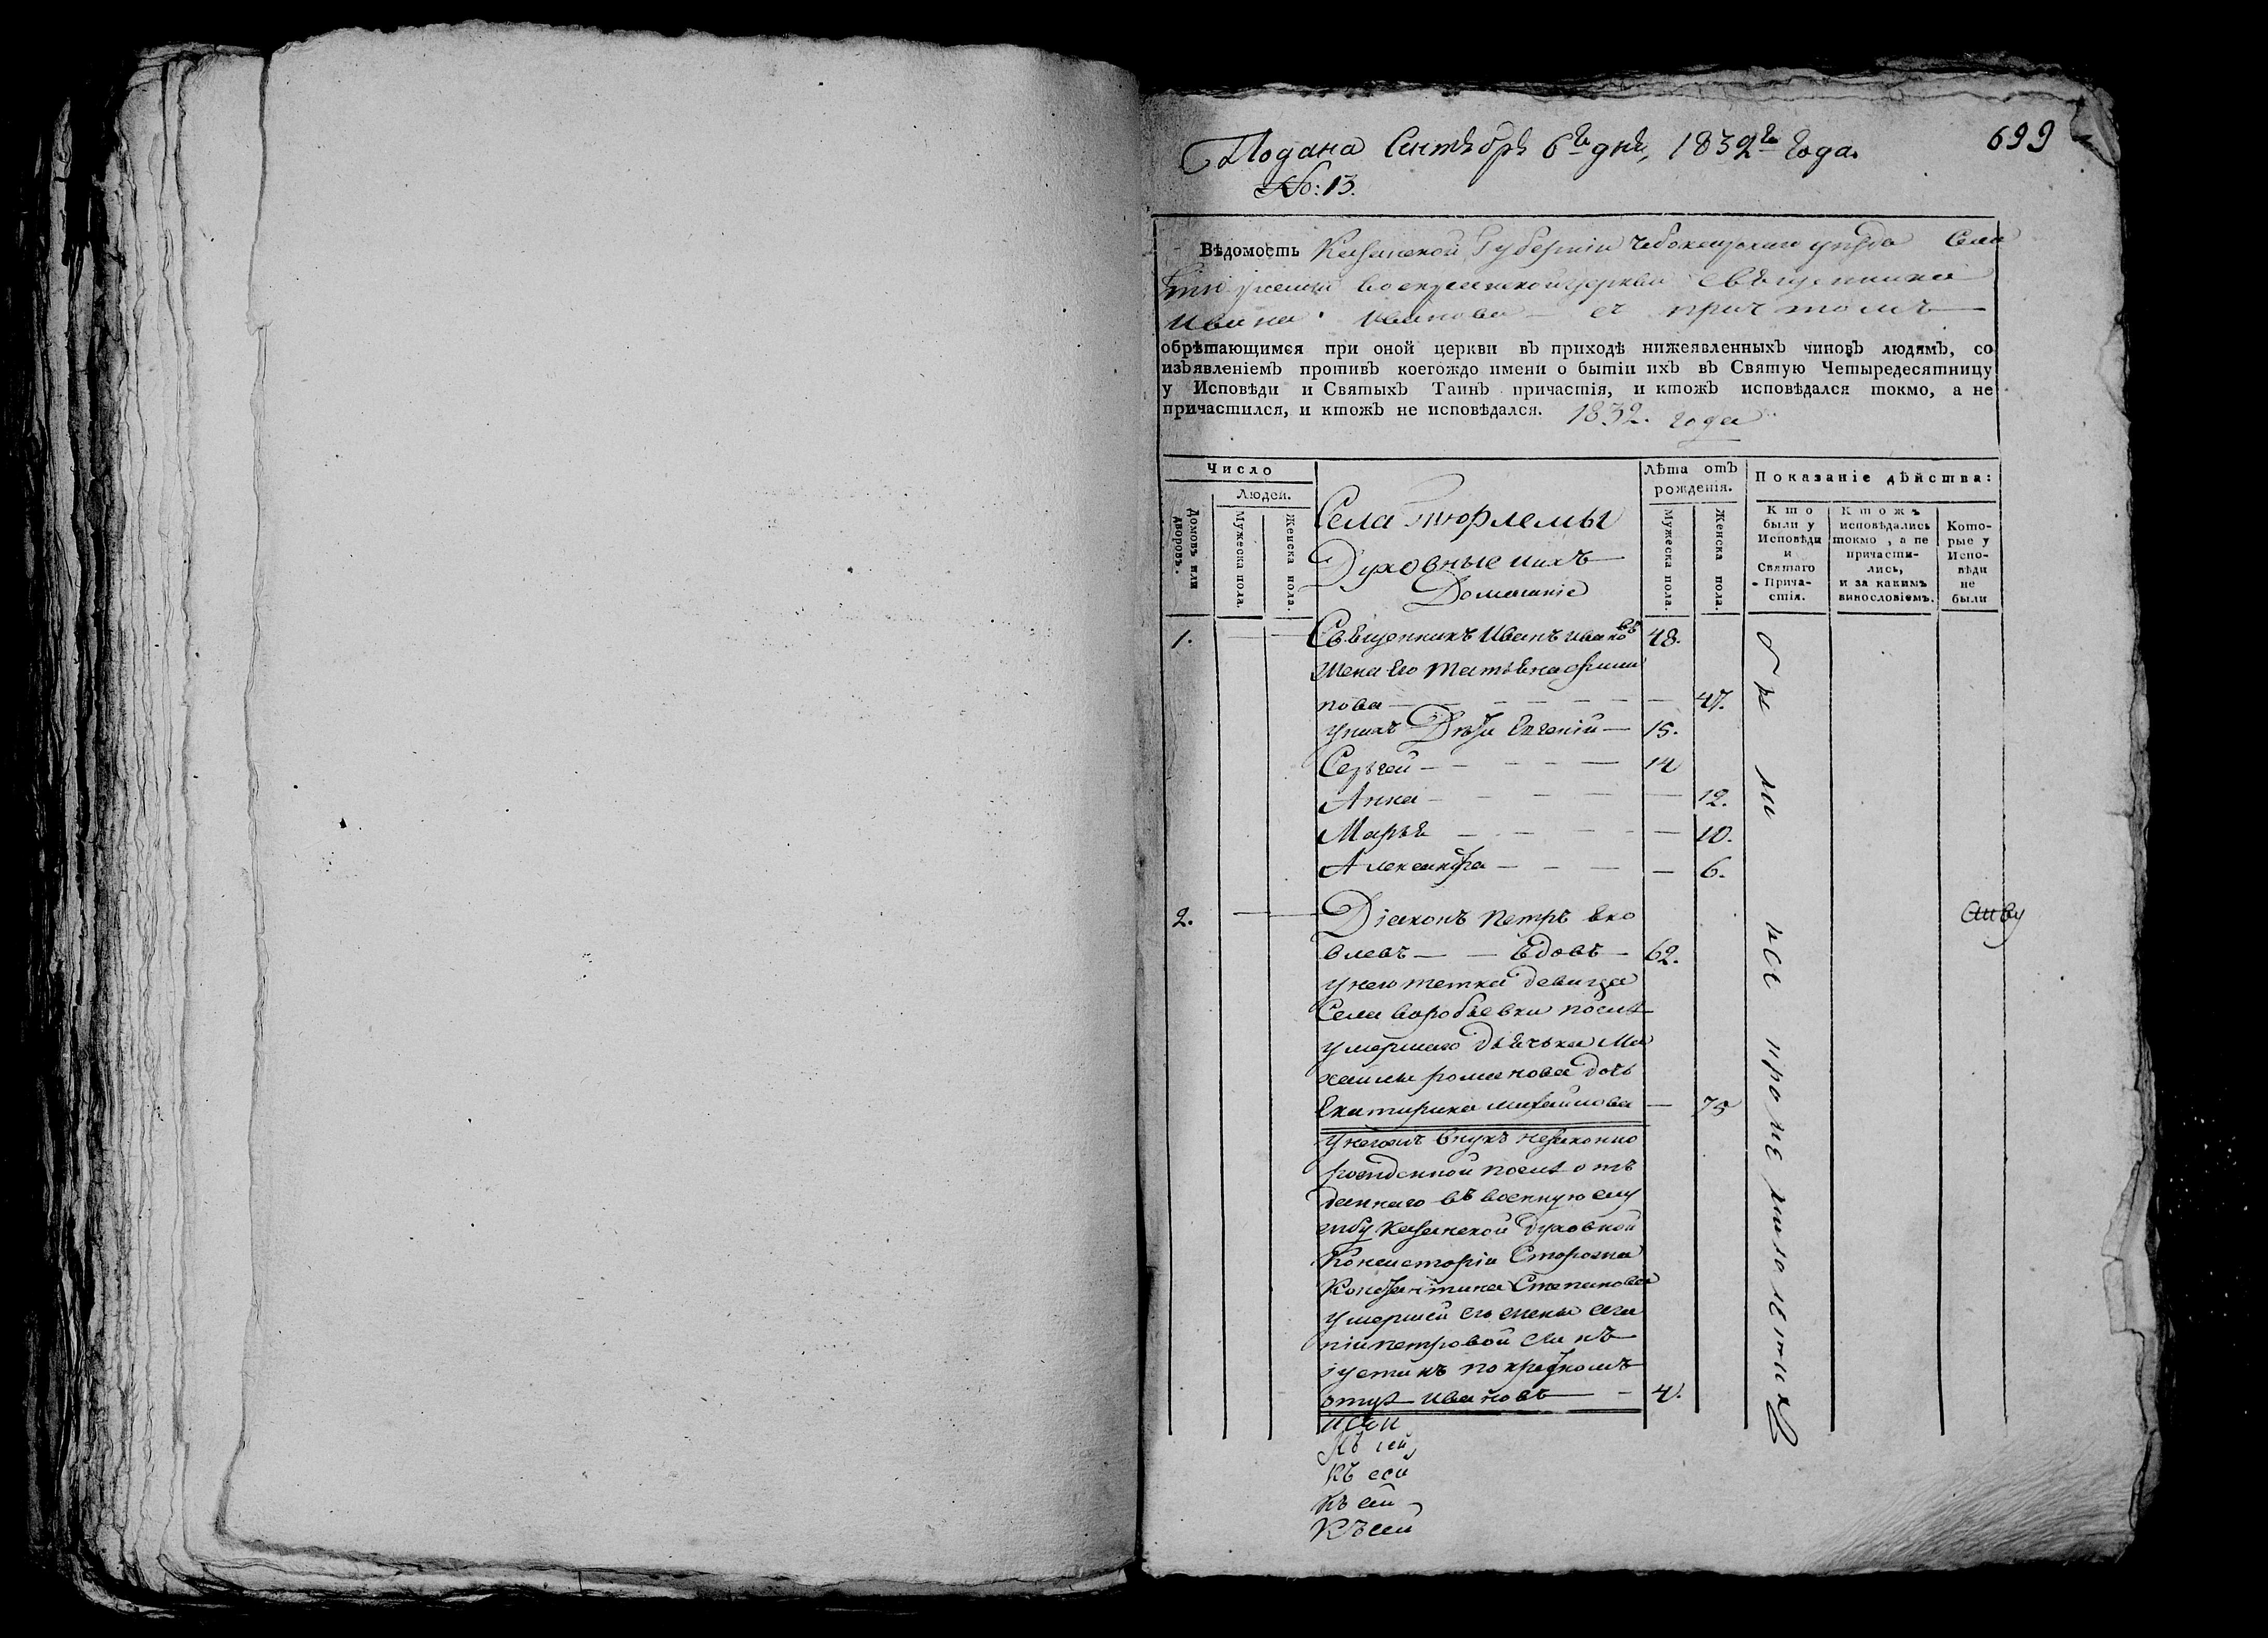 699
Подана Сентября 6го дня, 1832го Года.
No: 13.
Вѣдомость Казанской Губерніи Чебоксарскаго уѣзда Села
Воскресенской церкви священника
Ивана Иванова съ причтомъ
обрѣтающимся при оной церкви въ приходѣ нижеявленныхъ чиновъ людямъ, со
изъявленіемъ противъ коегождо имени о бытіи ихъ въ Святую Четыредесятницу
у Исповѣди и Святыхъ Таинъ причастія, и ктожъ исповѣдался токмо, а не
причастился, и ктожъ не исповѣдался. 1832. года
Число
Людей.
Домовъ или дворовъ.
Мужеска пола.
Женска пола.
Села Тюрлемы
Духовные и ихъ
Домашніе
Лѣта отъ
рожденія.
Мужеска пола.
Женска пола.
Показаніе дѣйства:
Кто
были у
Исповѣди
и
Святаго
Прича-
стія.
Ктожъ
исповѣдались
токмо, а не
причасти-
лись,
и за какимъ
винословіемъ.
Кото-
рые у
Испо-
вѣди
не
были
1. Священникъ Иванъ Ивановъ 48.
Жена Его Татьяна Фили
пова 47.
у нихъ Дѣти Евгений 15.
Сергей 14
Анна 12.
Марья 10.
Александра 6.
2. Діаконъ Петръ Яко
влевъ вдовъ 62.
у него тетка девица
Села Воробьевки послѣ
умершаго дьячька Ми
хаилы Романова дочь
Екатирина Михайлова 75
у негожъ внукъ незаконно
рожденной послѣ от
даннаго въ военную слу
жбу Казанской Духовной
Консисторіи Сторожа
Константина Степанова
умершей его жены
Петровой сынъ
Іустинъ по крестномъ
отцѣ Ивановъ 4.
къ сей
къ сей
къ сей
къ сей
были
все кроме малолетнихъ